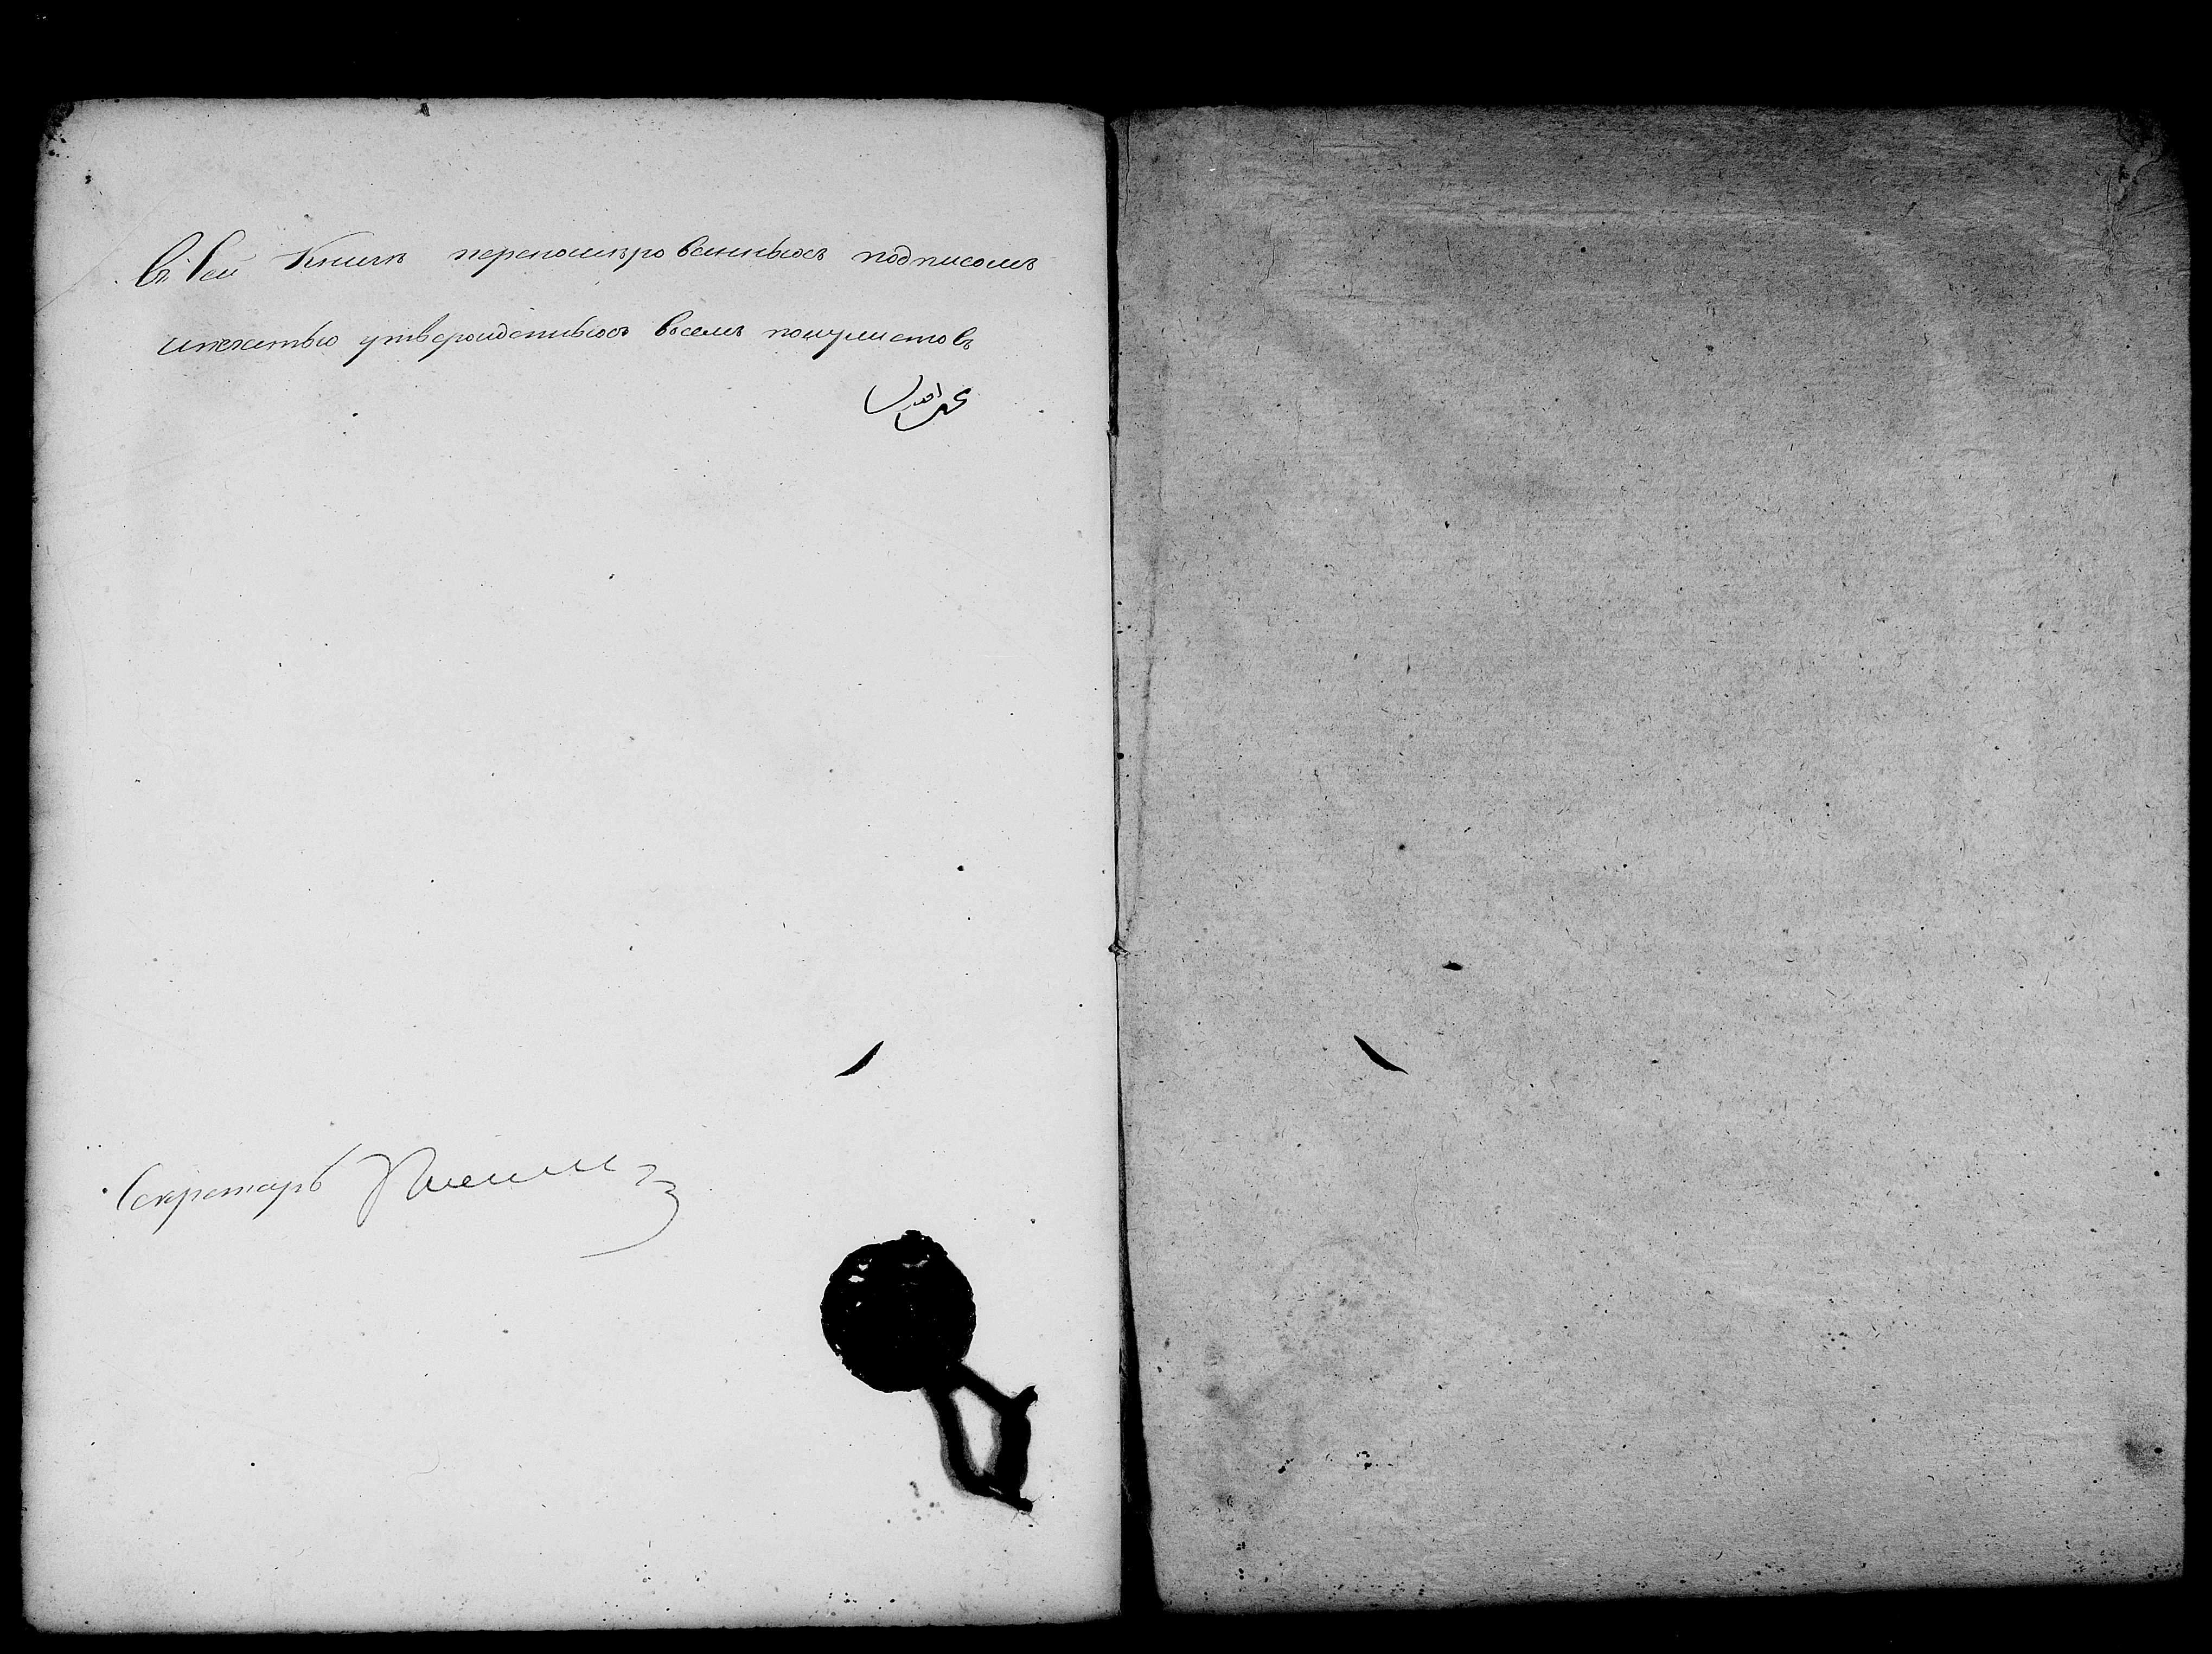 Въ Сей Книгѣ переномѣрованныхъ подписомъ
ипечатью утвержденныхъ восемь полулистовъ
Секретарь